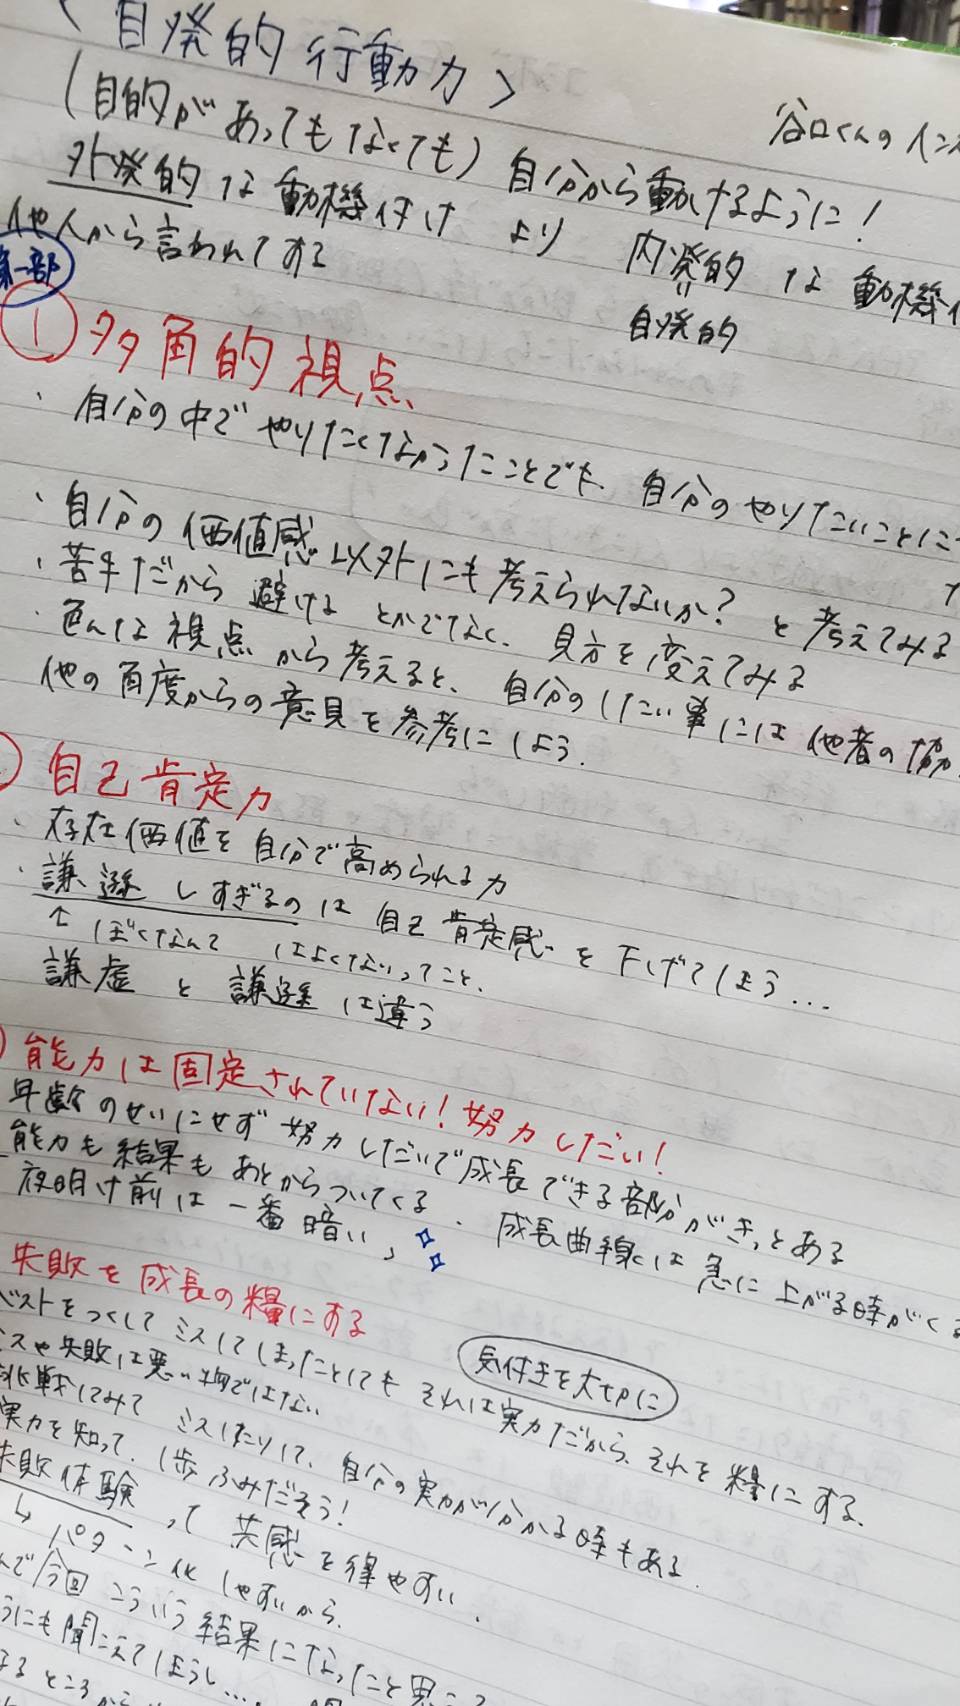 〈自発的行動力〉
谷口くんの
(目的があってもなくても) 自分から動けるように!
外発的な動機付け より 内発的な動機
他人から言われてする
自発的
第一部
① 多角的視点
・自分の中でやりたくなかったことでも、自分のやりたいことに
・自分の価値感以外にも考えられないか? と考えてみる
・苦手だから避けるとかでなく、見方を変えてみる
・色んな視点から考えると、自分のしたい事には他者の協
他の角度からの意見を参考にしよう.
自己肯定力
・存在価値を自分で高められる力
・謙遜しすぎるのは自己肯定感を下げてしまう...
↑ ぼくなんて はよくないってこと、
謙虚と謙遜は違う
能力は固定されていない! 努力しだい!
年齢のせいにせず努力しだいで成長できる部分がきっとある
能力も結果もあとからついてくる. 成長曲線は急に上がる時がくる
夜明け前は一番暗い、
失敗を成長の糧にする
気付きを大切に
ベストをつくしてミスしてしまったことしても それは実力だから、それを糧にする.
ミスや失敗は悪い物ではない
挑戦してみて ミスしたりして、自分の実力が分かる時もある.
実力を知って、1歩ふみだそう!
失敗体験って 共感を得やすい.
↳ パターン化しやすいから.
んで今回こういう結果になったと思
うにも聞こえてしまうし...
るところから